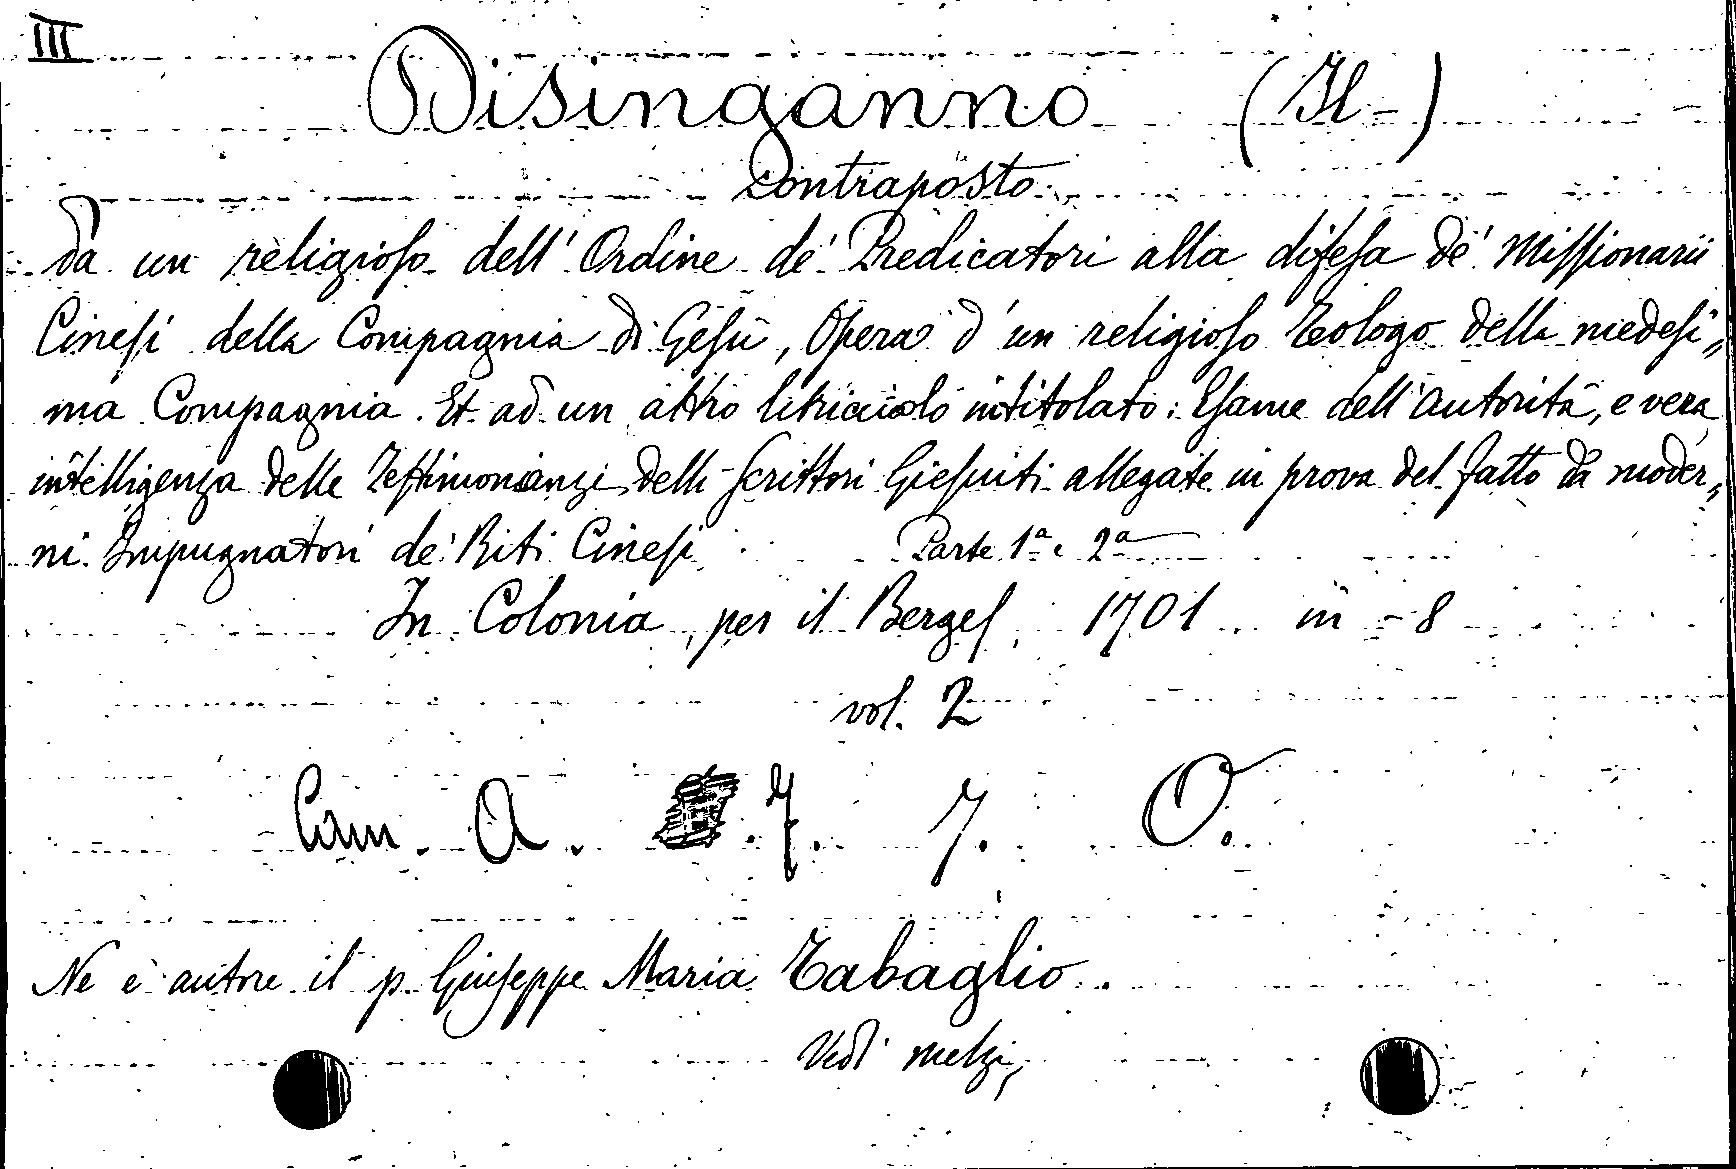 III
Disinganno (Il -)
contraposto
da un religioso dell' Ordine de' Predicatori alla difesa de' Missionarii
Cinesi della Compagnia di Gesù, Opera d'un religioso Teologo della medesi„
ma Compagnia. Et ad un altro libricciolo intitolato: Esame dell'Autorità, e vera
intelligenza delle Testimonianze delli Scrittori Giesuiti allegate in prova del fatto da moder„
ni Impugnatori de' Riti Cinesi. Parte 1ª e 2ª
In Colonia, per il Berges, 1701 in - 8
vol. 2
Cam. A. . 7. 7. O.
Ne è autore il p. Giuseppe Maria Tabaglio.
Vedi Melzi,